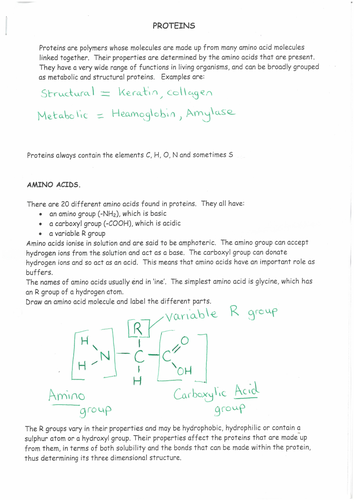 PROTEINS
Proteins are polymers whose molecules are made up from many amino acid molecules
linked together. Their properties are determined by the amino acids that are present.
They have a very wide range of functions in living organisms, and can be broadly grouped
as metabolic and structural proteins. Examples are:
Structural = Keratin, collagen
Metabolic = Heamoglobin, Amylase
Proteins always contain the elements C, H, O, N and sometimes S
AMINO ACIDS.
There are 20 different amino acids found in proteins. They all have:
• an amino group (-NH₂), which is basic
• a carboxyl group (-COOH), which is acidic
• a variable R group
Amino acids ionise in solution and are said to be amphoteric. The amino group can accept
hydrogen ions from the solution and act as a base. The carboxyl group can donate
hydrogen ions and so act as an acid. This means that amino acids have an important role as
buffers.
The names of amino acids usually end in 'ine'. The simplest amino acid is glycine, which has
an R group of a hydrogen atom.
Draw an amino acid molecule and label the different parts.
Variable R group
R
H
O
N - C - C
H
OH
H
Amino
group
Carboxylic Acid
group
The R groups vary in their properties and may be hydrophobic, hydrophilic or contain a
sulphur atom or a hydroxyl group. Their properties affect the proteins that are made up
from them, in terms of both solubility and the bonds that can be made within the protein,
thus determining its three dimensional structure.